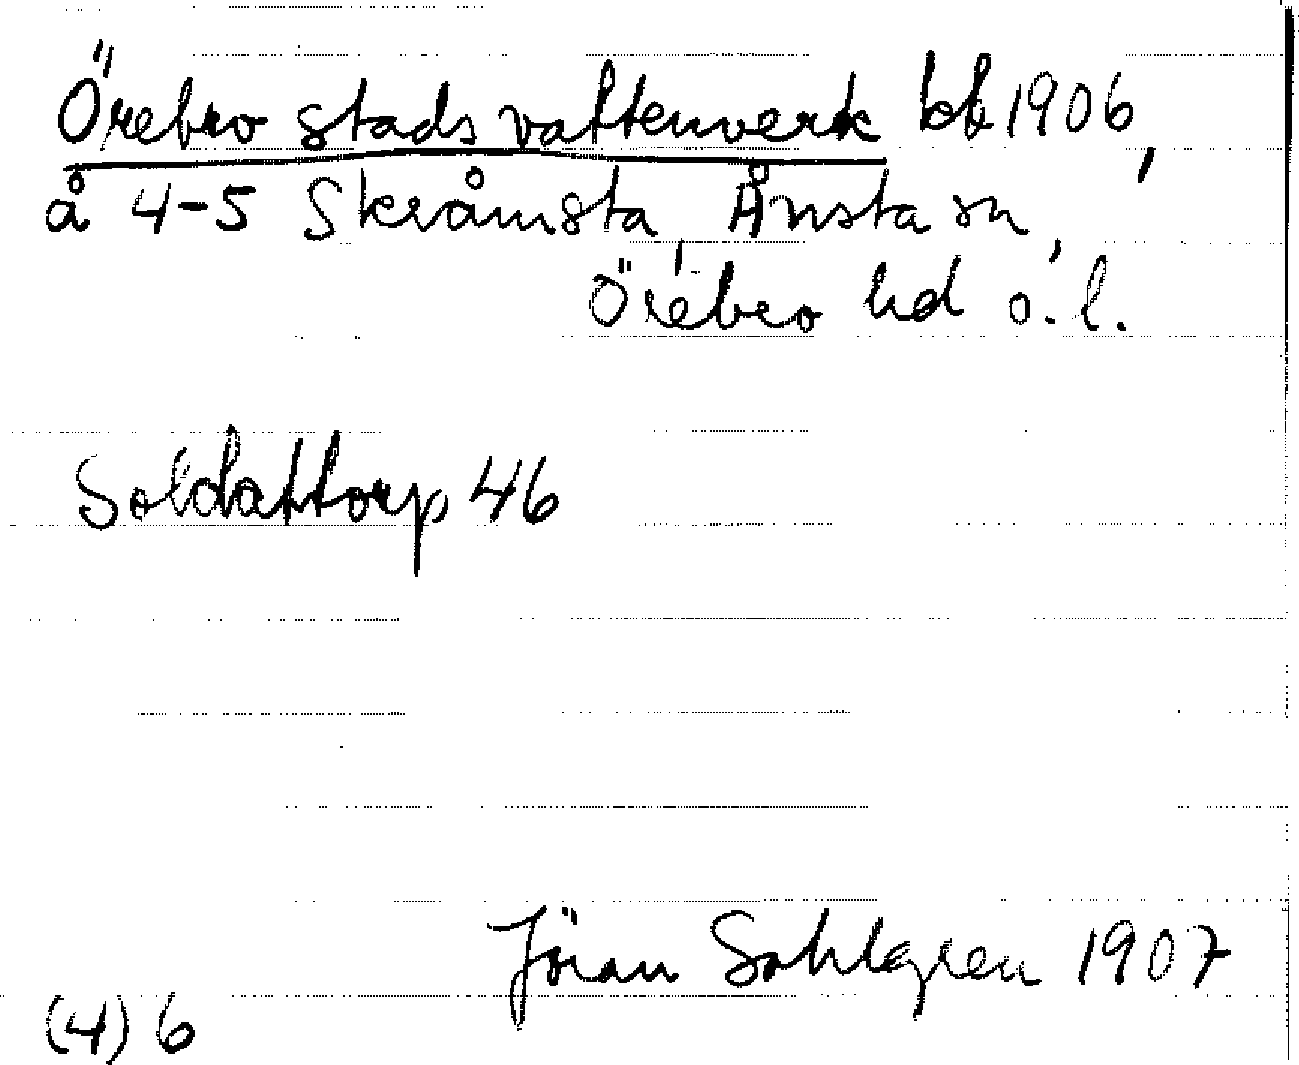 Örebro stads vattenverk bb 1906,
å 4-5 Skråmsta, Ånsta sn,
Örebro hd ö. l.
Soldattorp 46
Jöran Sahlgren 1907
(4) 6